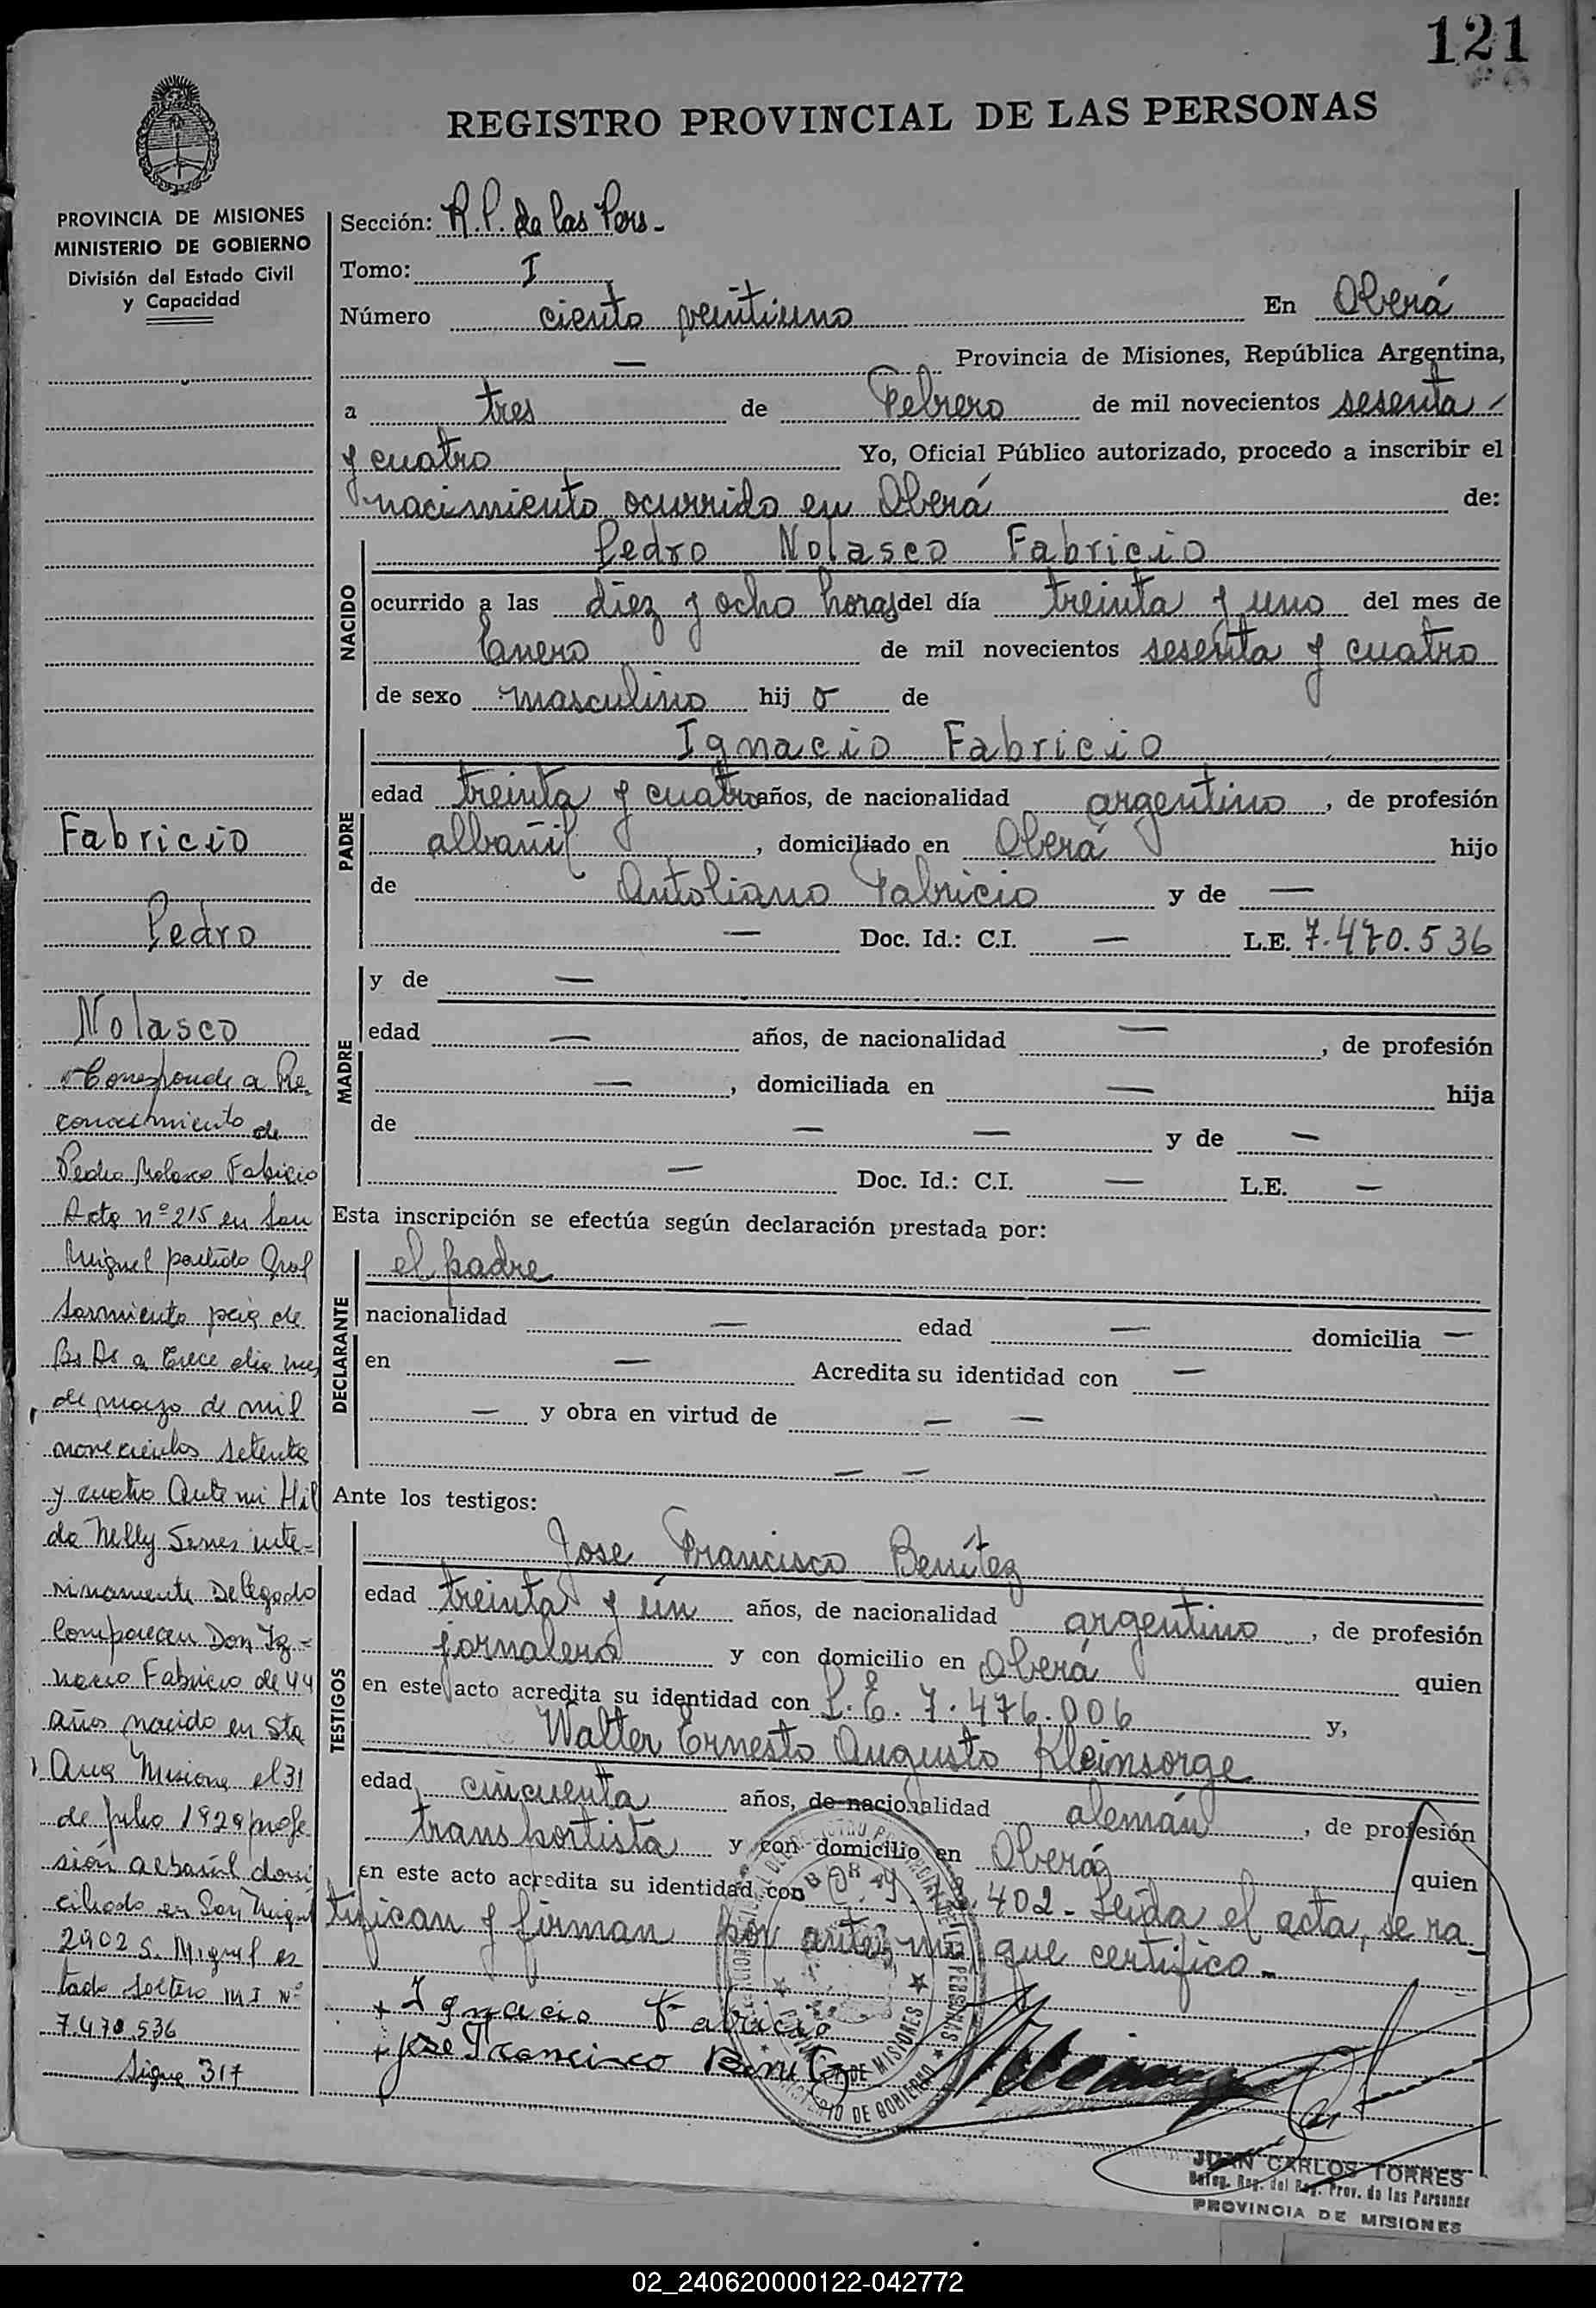 121
REGISTRO PROVINCIAL DE LAS PERSONAS
PROVINCIA DE MISIONES
MINISTERIO DE GOBIERNO
División del Estado Civil
y Capacidad
Fabricio
Pedro
Nolasco
Corresponde a Re
conocimiento de
Pedro Nolasco Fabricio
Acta nº 215 en San
Miguel partido Gral
Sarmiento pcia de
Bs As a trece dia mes
de marzo de mil
novecientos setenta
y cuatro Ante mi Hil
da Nelly inte-
rinamente Delegado
Comparecen Don Ig-
nacio Fabricio de 44
años nacido en Sta
Ana Misiones el 31
de Julio 1929 profe
sión albañil domi
ciliado en San Miguel
2902 S. Miguel es
tado soltero M I Nº
7.470.536
Sigue 317
Sección: R.P. de las Pers-
Tomo: I
Número ciento veintiuno En Oberá
— Provincia de Misiones, República Argentina,
a tres de Febrero de mil novecientos sesenta
y cuatro Yo, Oficial Público autorizado, procedo a inscribir el
nacimiento ocurrido en Oberá de:
NACIDO
Pedro Nolasco Fabricio
ocurrido a las diez y ocho horas del día treinta y uno del mes de
Enero de mil novecientos sesenta y cuatro
de sexo masculino hij o de
PADRE
Ignacio Fabricio
edad treinta y cuatro años, de nacionalidad argentino, de profesión
albañil, domiciliado en Oberá hijo
de Antoliano Fabricio y de —
— Doc. Id.: C.I. — L.E. 7.470.536
MADRE
y de —
edad — años, de nacionalidad —, de profesión
—, domiciliada en — hija
de — — y de —
— Doc. Id.: C.I. — L.E. —
Esta inscripción se efectúa según declaración prestada por:
DECLARANTE
el padre
nacionalidad — edad — domicilia —
en — Acredita su identidad con —
— y obra en virtud de — —
— —
Ante los testigos:
TESTIGOS
Jose Francisco Benítez
edad treinta y ún años, de nacionalidad argentino, de profesión
jornalero y con domicilio en Oberá quien
en este acto acredita su identidad con L.E. 7.476.006 y,
Walter Ernesto Augusto Kleinsorge
edad cincuenta años, de nacionalidad alemán, de profesión
transportista y con domicilio en Oberá quien
en este acto acredita su identidad con 402- Leida el acta, se ra
tifican y firman por ante mi que certifico-
Ignacio Fabricio
jose Francisco Benitez
JUAN CARLOS TORRES
Deleg. Reg. del Reg. Prov. de las Personas
PROVINCIA DE MISIONES
02_240620000122-042772